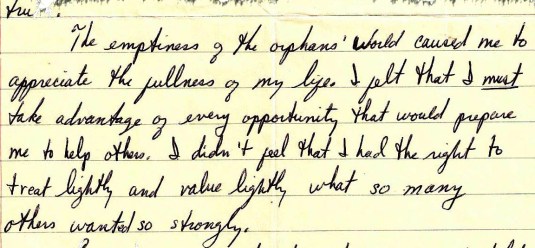 true.
The emptiness of the orphans' world caused me to
appreciate the fullness of my life. I felt that I must
take advantage of every opportunity that would prepare
me to help others. I didn't feel that I had the right to
treat lightly and value lightly what so many
others wanted so strongly.